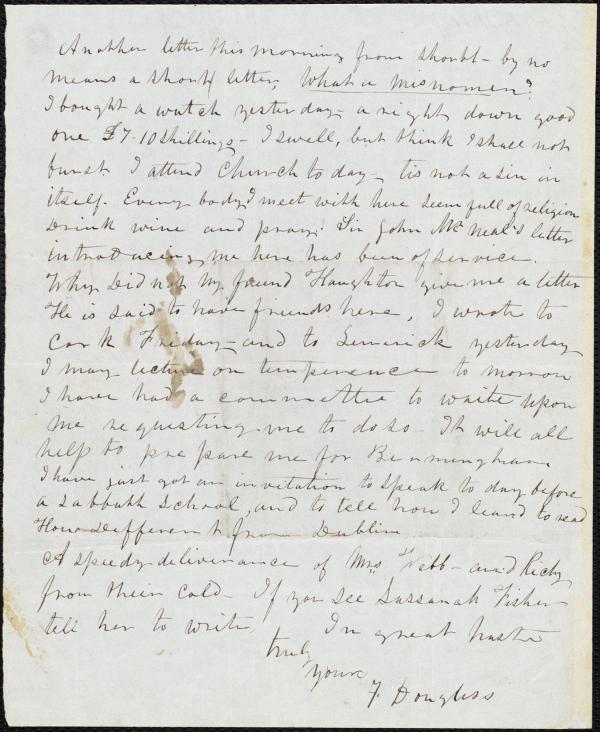 Another letter this morning from Shortt - by no
means a short letter, What a misnomer?
I bought a watch yesterday - a right down good
one £7-10 shillings - I swell, but think I shall not
burst. I attend Church to day - tis not a sin in
itself. Every body I meet with here seem full of religion
Drink wine and pray. Sir John McNeal's letter
introducing me here has been of service.
Why Did not My friend Haughton give me a letter
He is said to have friends here, I wrote to
Cork Friday - and to Limerick yesterday
I may lecture on temperence to morrow
I have had a committe to waite upon
me requesting me to do so - It will all
help to prepare me for Birmingham
I have just got an invitation to speak to day before
a Sabbath School, and to tell how I leand to read
How Different from Dublin
A speedy deliverance of Mrs Webb - and Richy
from their cold - If you see Sussanah Fisher
tell her to write. In great haste
truly
yours
F. Douglass